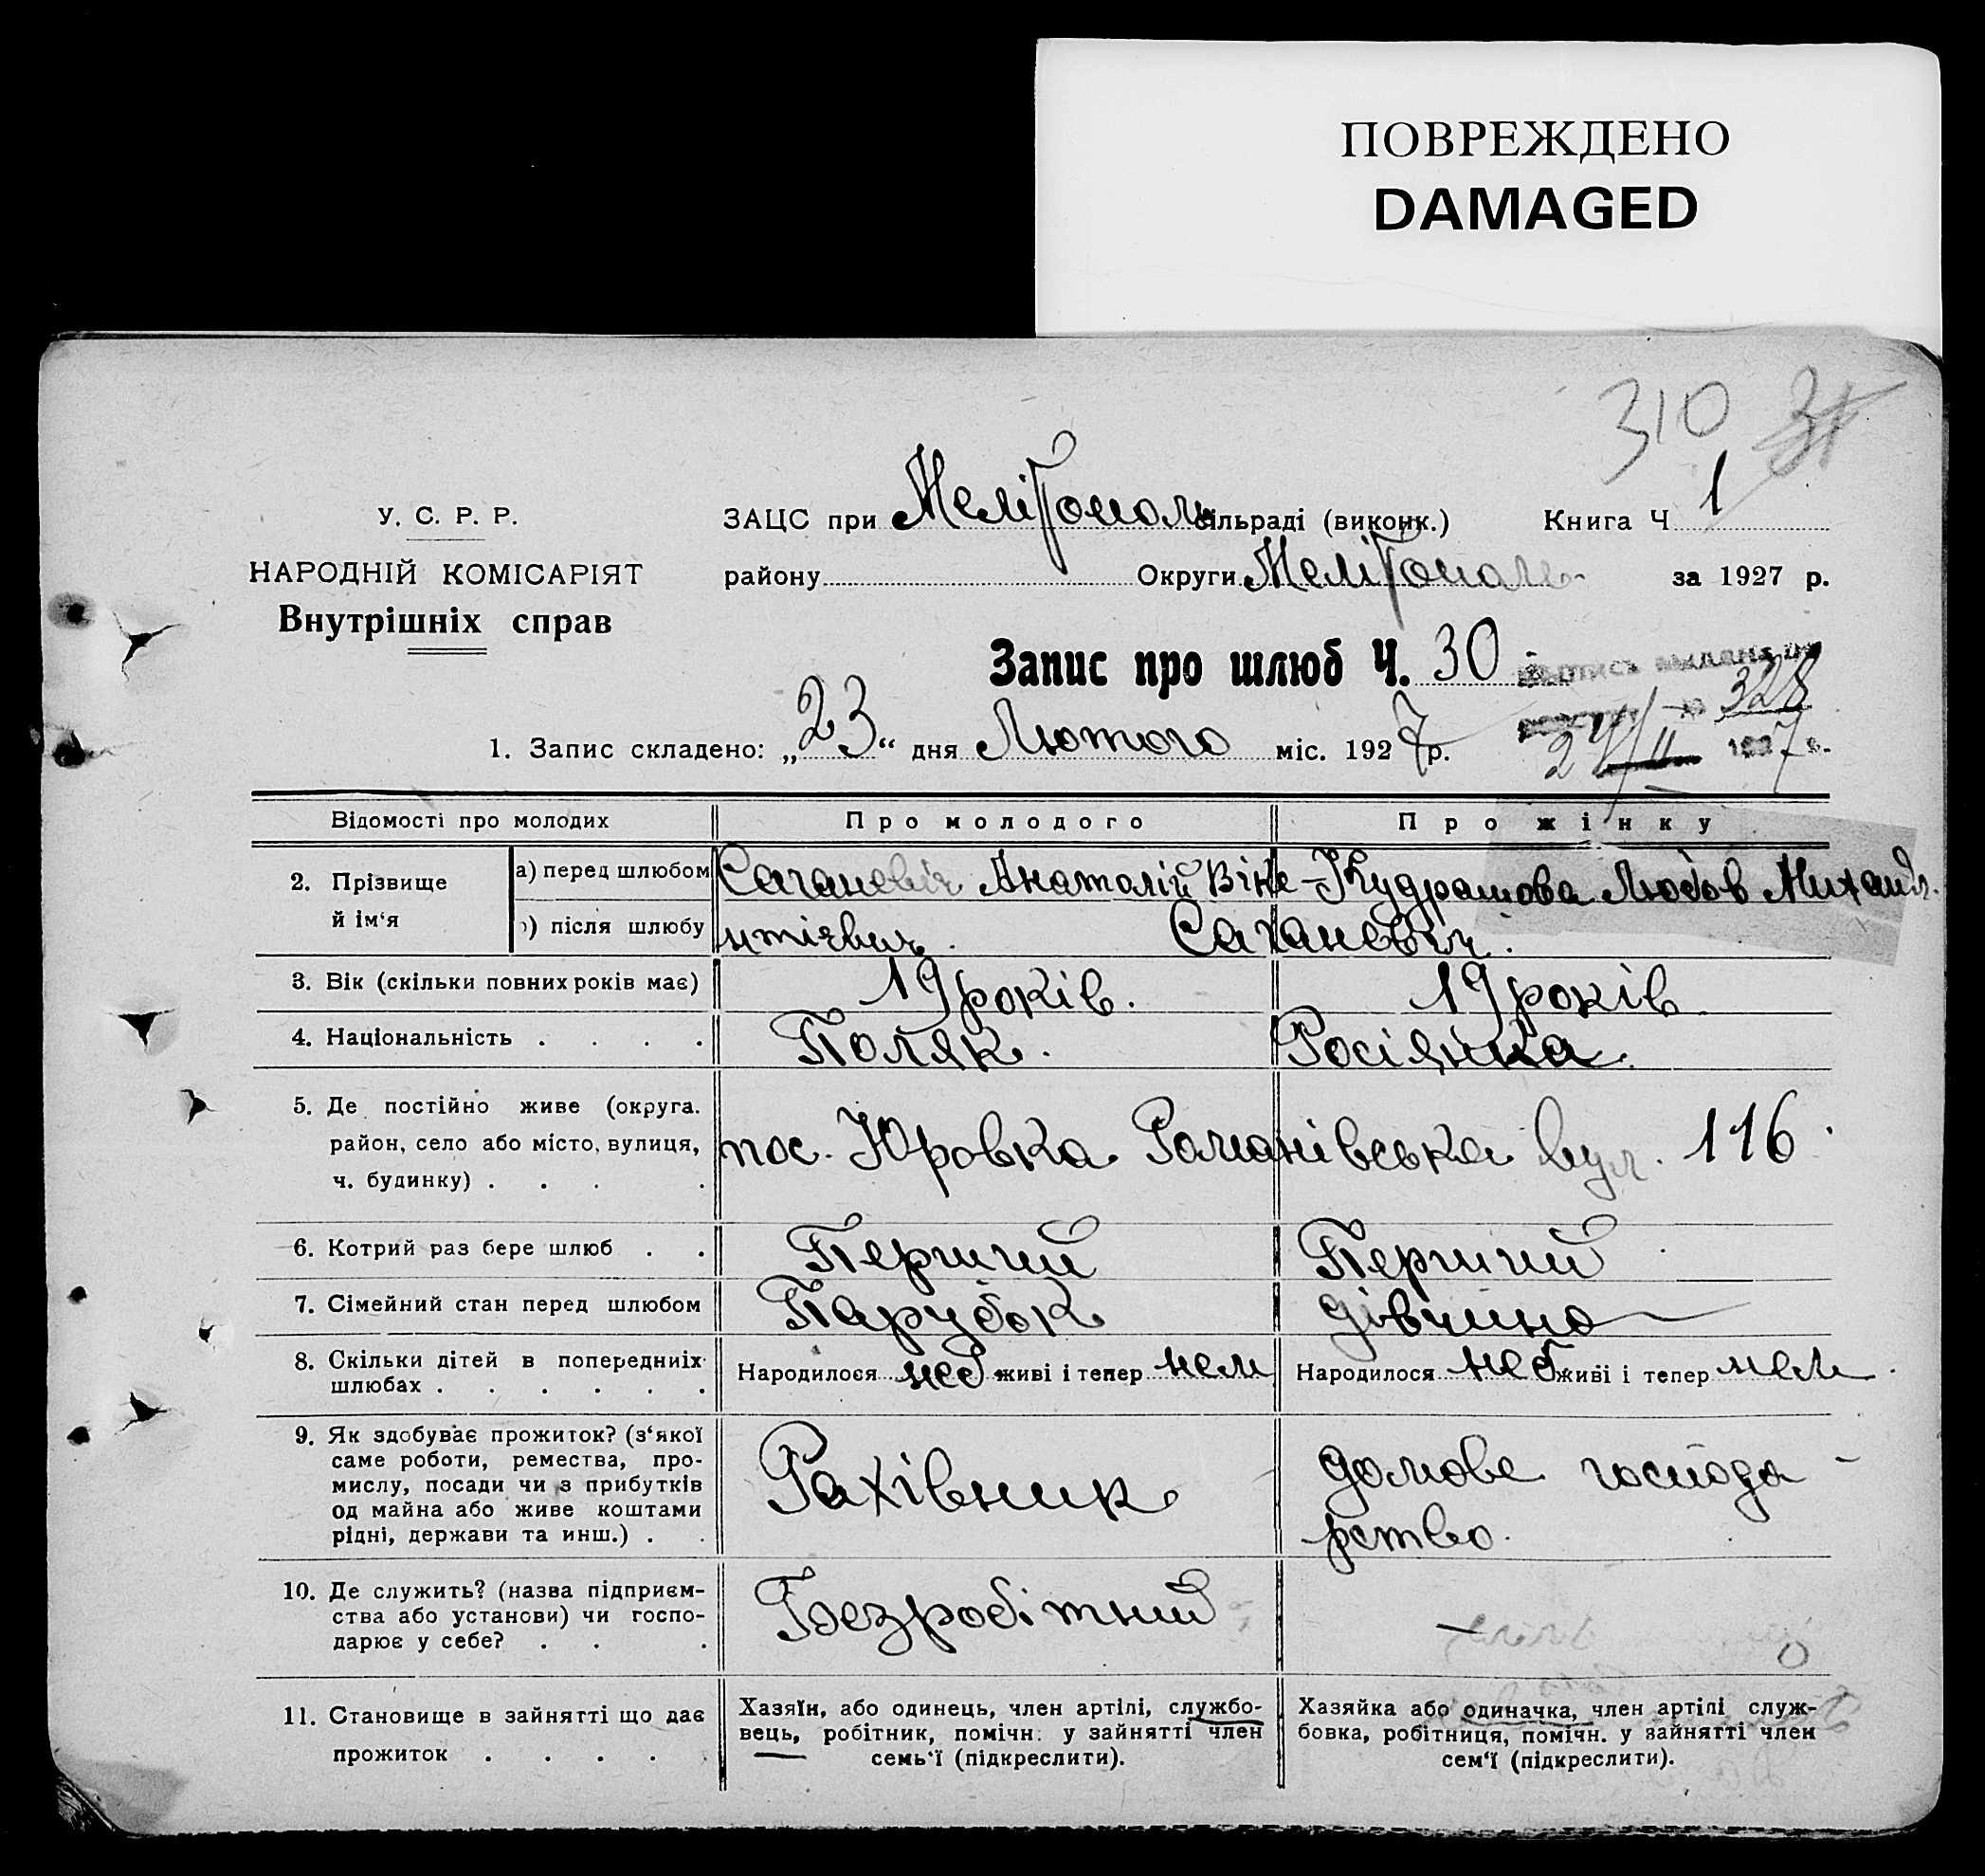 ПОВРЕЖДЕНО
DAMAGED
310 31
У. С. Р. Р.
НАРОДНІЙ КОМІСАРІЯТ
Внутрішніх справ
ЗАЦС при Мелітополь сільраді (виконк.) Книга Ч 1
району Округи Мелітополь за 1927 р.
Запис про шлюб Ч. 30
328
1. Запис складено: „23“ дня Лютого міс. 1927 р.
Відомості про молодих
Про молодого
Про жінку
2. Прізвище й ім‘я
а) перед шлюбом
Саганевич Анатолій Віке-
Кудрашова Любов Михайл.
) після шлюбу
нтієвич.
Саганевич.
3. Вік (скільки повних років має)
19 років.
19 років
4. Національність . . . .
Поляк.
Росіянка.
5. Де постійно живе (округа.
район, село або місто, вулиця,
ч. будинку) . . . .
пос. Юровка Романівська вул. 116.
6. Котрий раз бере шлюб . .
Перший
Перший
7. Сімейний стан перед шлюбом
Парубок
дівчина
8. Скільки дітей в попередниіх
шлюбах . . . . . .
Народилося неб живі і тепер нем
Народилося неб живіі і тепер нем.
9. Як здобуває прожиток? (з‘якої
саме роботи, ремества, про-
мислу, посади чи з прибутків
од майна або живе коштами
рідні, держави та инш.) . .
Рахівник
домове господа-
рство.
10. Де служить? (назва підприєм-
ства або установи) чи госпо-
дарює у себе? . . .
Безробітний
11. Становище в зайнятті що дає
прожиток . . . . .
Хазяїн, або одинець, член артілі, службо-
вець, робітник, помічн. у зайнятті член
семь‘ї (підкреслити).
Хазяйка або одиначка, член артілі служ-
бовка, робітниця, помічн. у зайнятті член
сем‘ї (підкреслити).